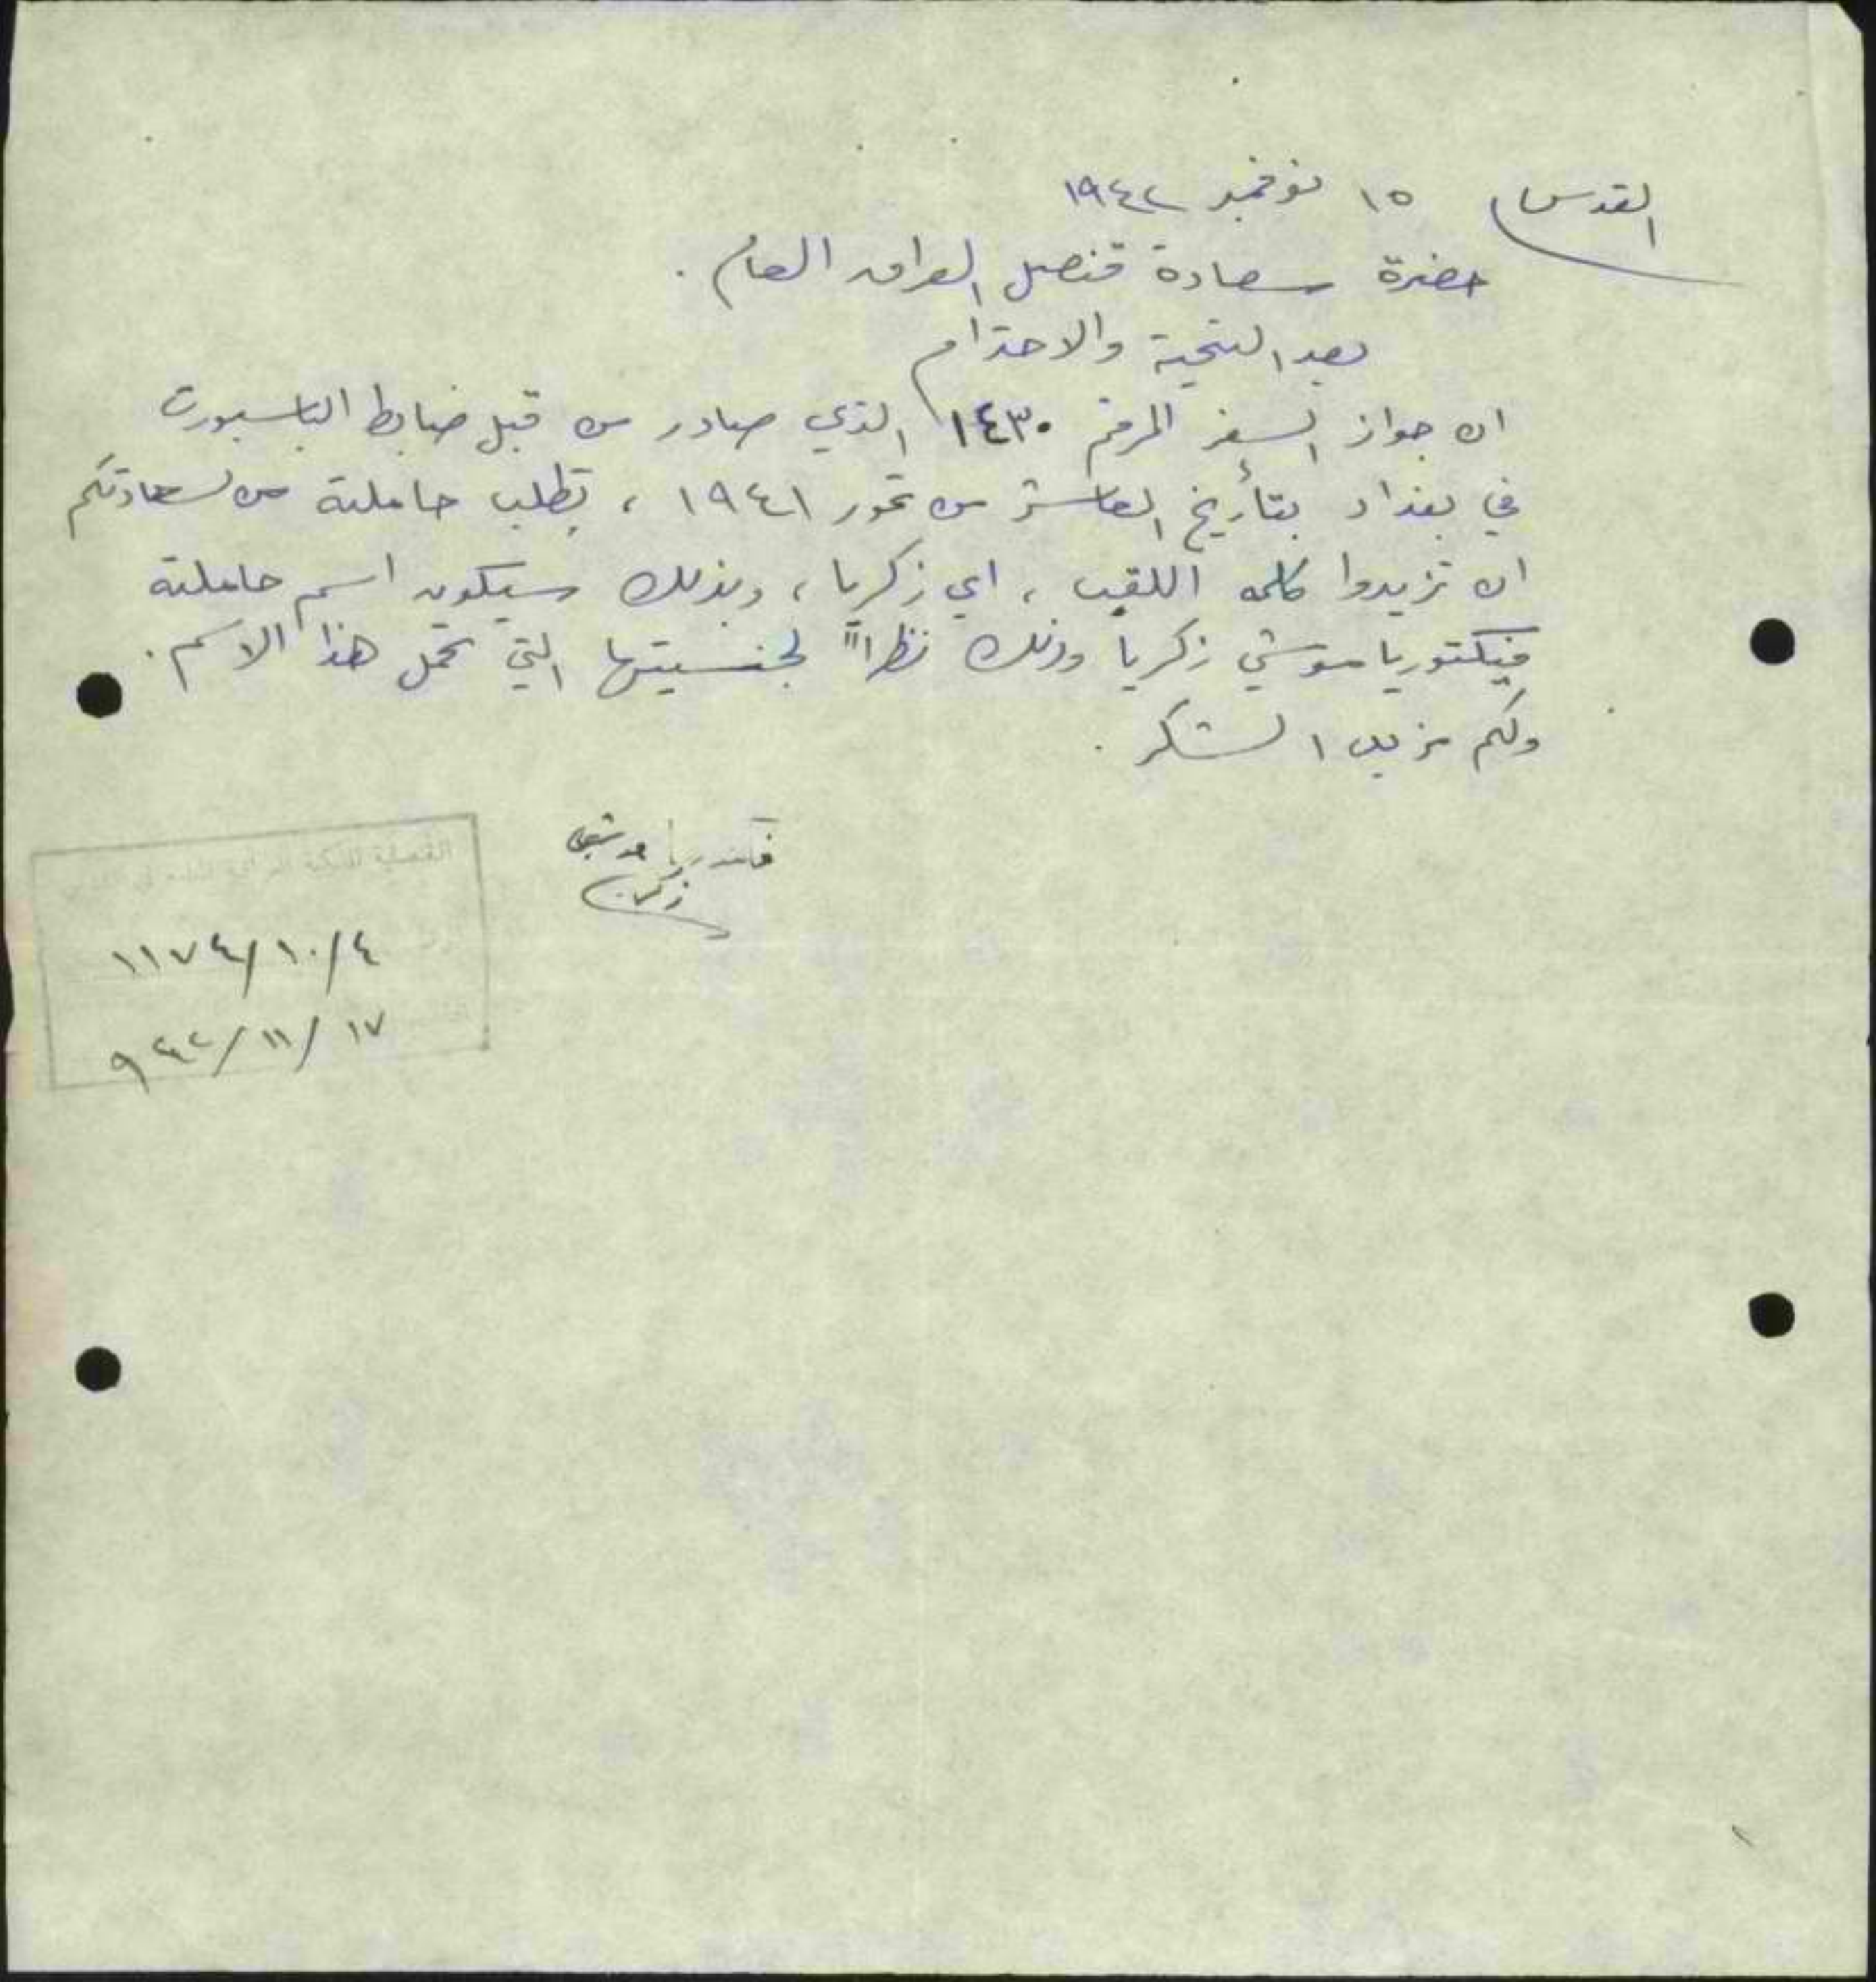 القدس ١٥ نوفمبر ١٩٤٢
حضرة سعادة قنصل العراق العام .
بعد التحية والاحترام
ان جواز السفر المرقم ١٤٣٠ الذي صادر من قبل ضابط الباسبورت
في بغداد بتأريخ العاشر من تموز ١٩٤١ ، تطلب حاملته من سعادتكم
ان تزيدوا كلمه اللقب ، اي زكريا ، وبذلك سيكون اسم حاملته
فيكتوريا موشي زكريا وذلك نظراً لجنسيتها التي تحمل هذا الاسم .
ولكم مزيد الشكر .
فكتوريا موشي
زكريا
القنصلية الملكية العراقية
١١٧٤/١٠/٤
٩٤٢/١١/١٧